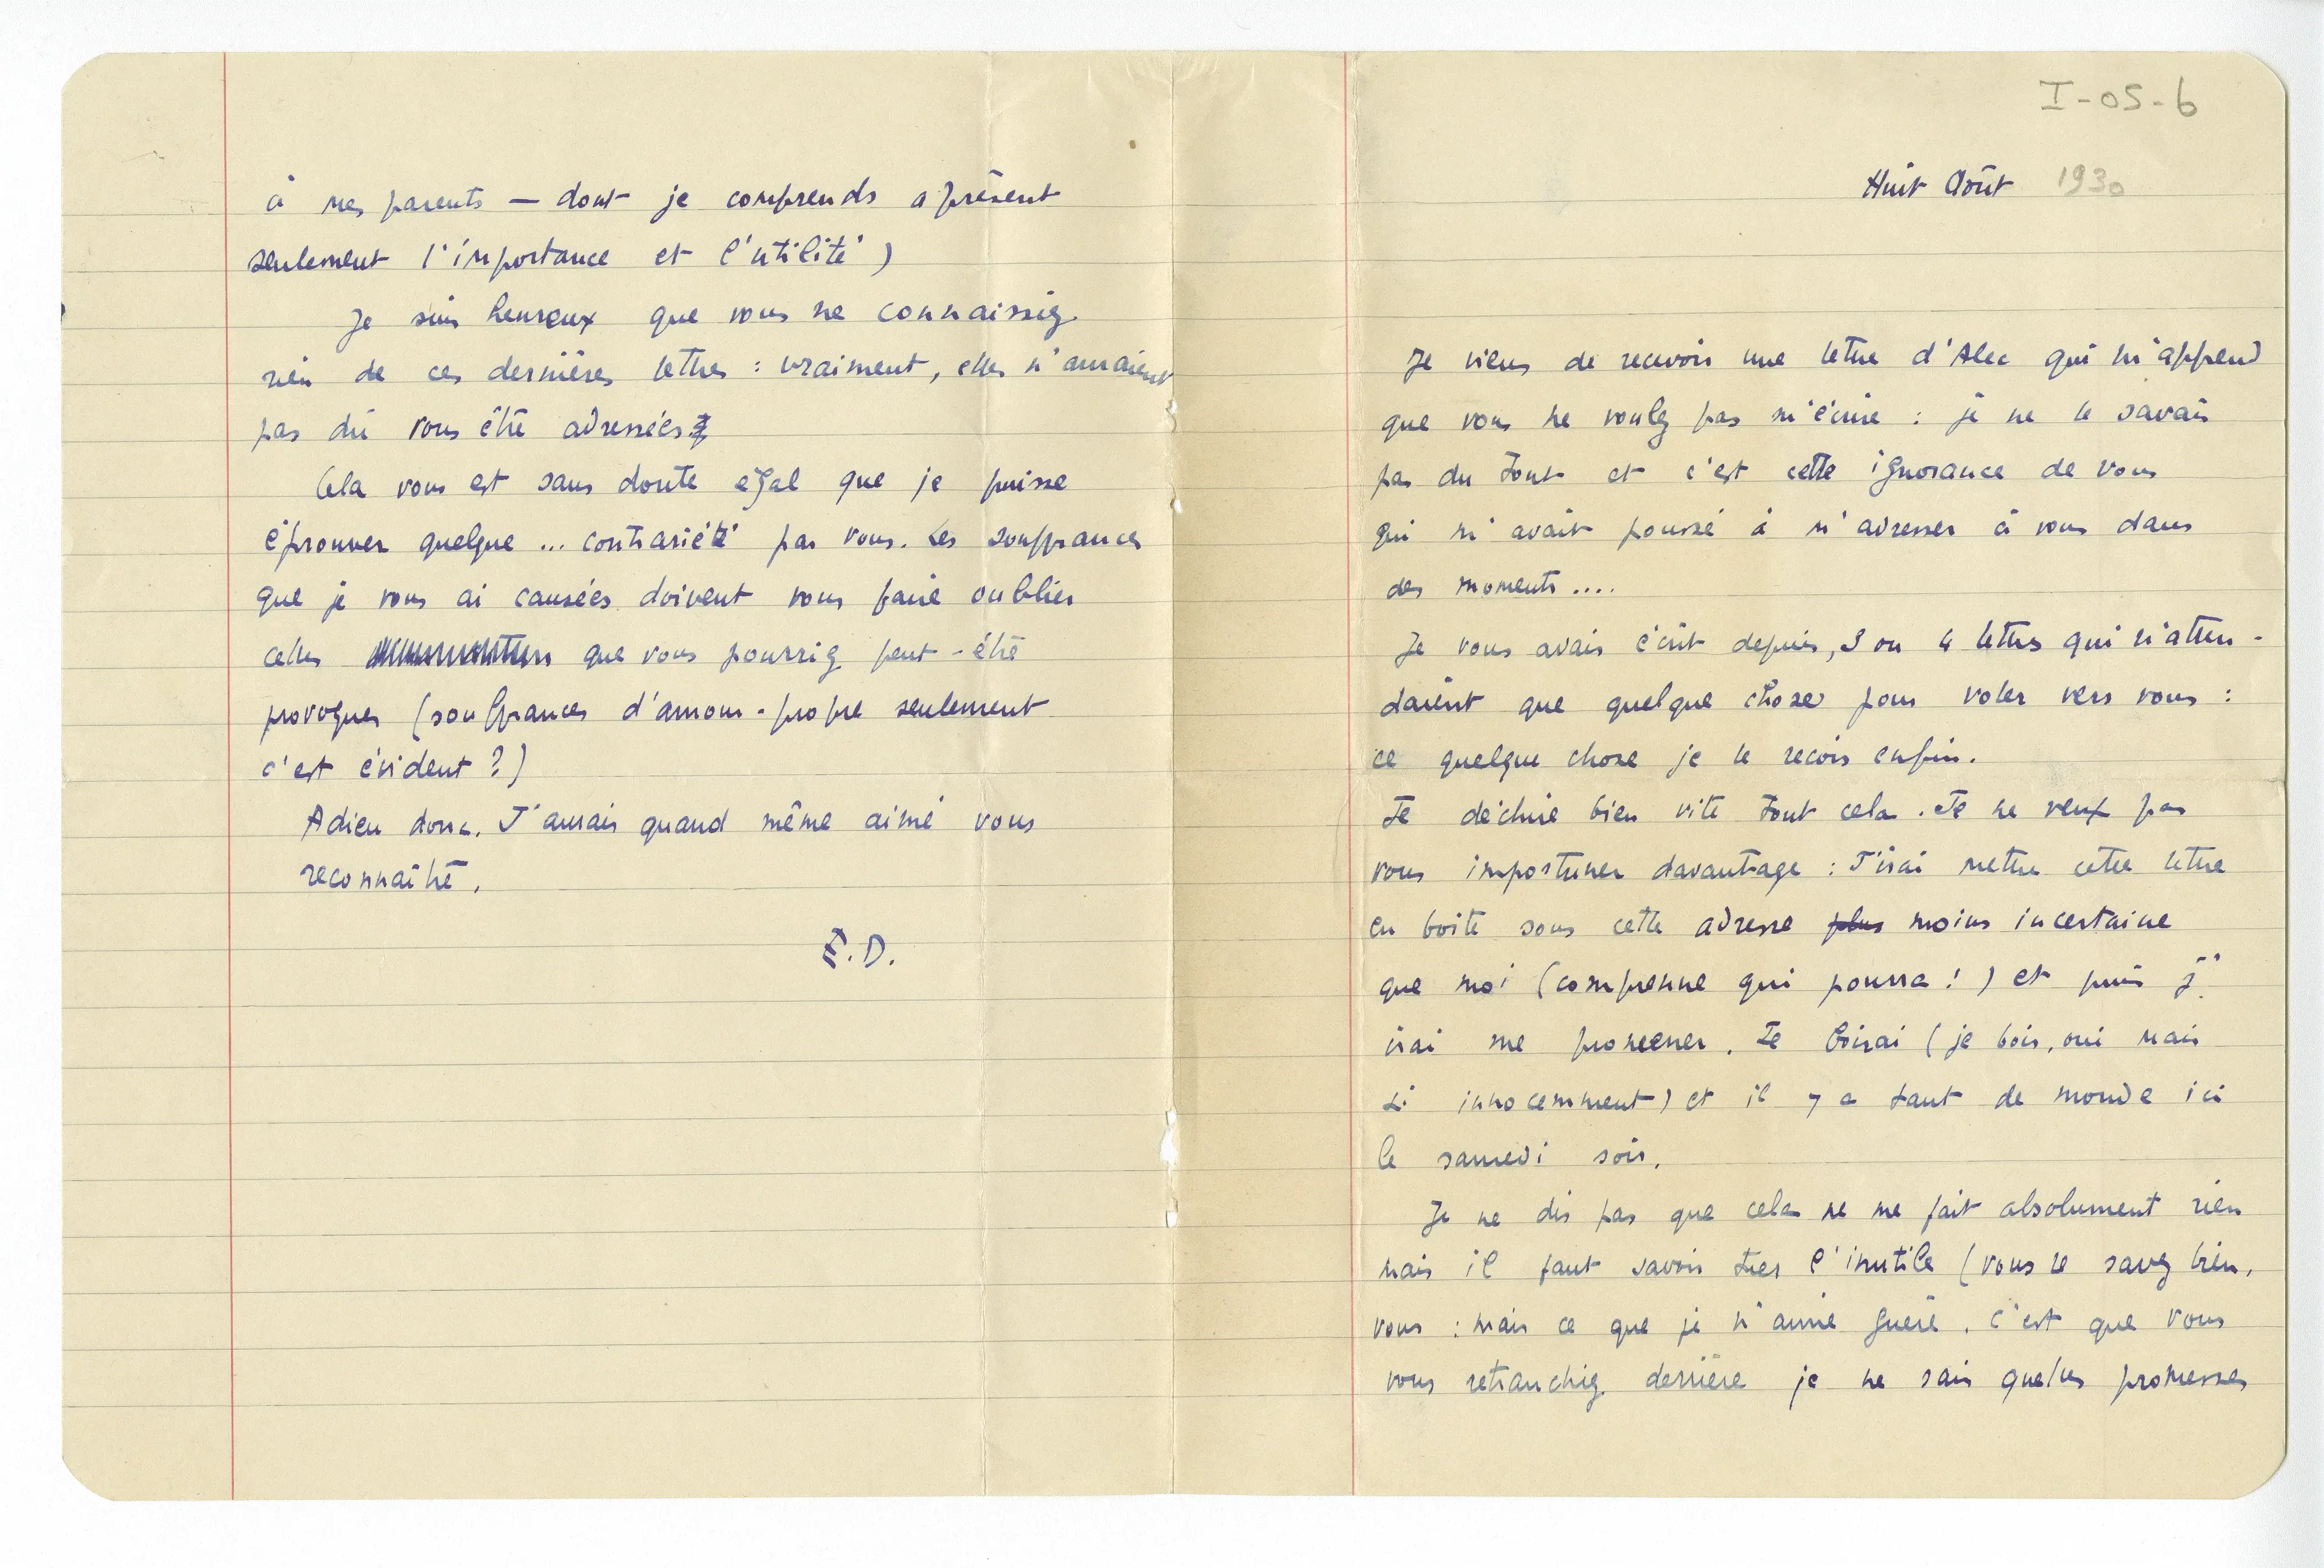 I-05-6
Huit Août 1930
Je viens de recevoir une lettre d'Alec qui m'apprend
que vous ne voulez pas m'écrire : je ne le savais
pas du tout et c'est cette ignorance de vous
qui m'avait poussé à m'adresser à vous dans
des moments....
Je vous avais écrit depuis, 3 ou 4 lettres qui n'atten-
daient que quelque chose pour voler vers vous :
ce quelque chose je le reçois enfin.
Je déchire bien vite tout cela. Je ne veux pas
vous importuner davantage : J'irai mettre cette lettre
en boite sous cette adresse plus moins incertaine
que moi (comprenne qui pourra !) et puis j'
irai me promener. Je boirai (je bois, oui mais
si innocemment) et il y a tant de monde ici
le samedi soir.
Je ne dis pas que cela ne me fait absolument rien
mais il faut savoir tuer l'inutile (vous le savez bien,
vous : mais ce que je n'aime guère, c'est que vous
vous retranchiez derrière je ne sais quelles promesses
à mes parents — dont je comprends à présent
seulement l'importance et l'utilité)
Je suis heureux que vous ne connaissiez
rien de ces dernières lettres : vraiment, elles n'auraient
pas dû vous être adressées
Cela vous est sans doute égal que je puisse
éprouver quelque ... contrariété par vous. Les souffrances
que je vous ai causées doivent vous faire oublier
celles que vous pourriez peut-être
provoquer (souffrances d'amour-propre seulement
c'est évident ?)
Adieu donc. J'aurais quand même aimé vous
reconnaître.
E.D.